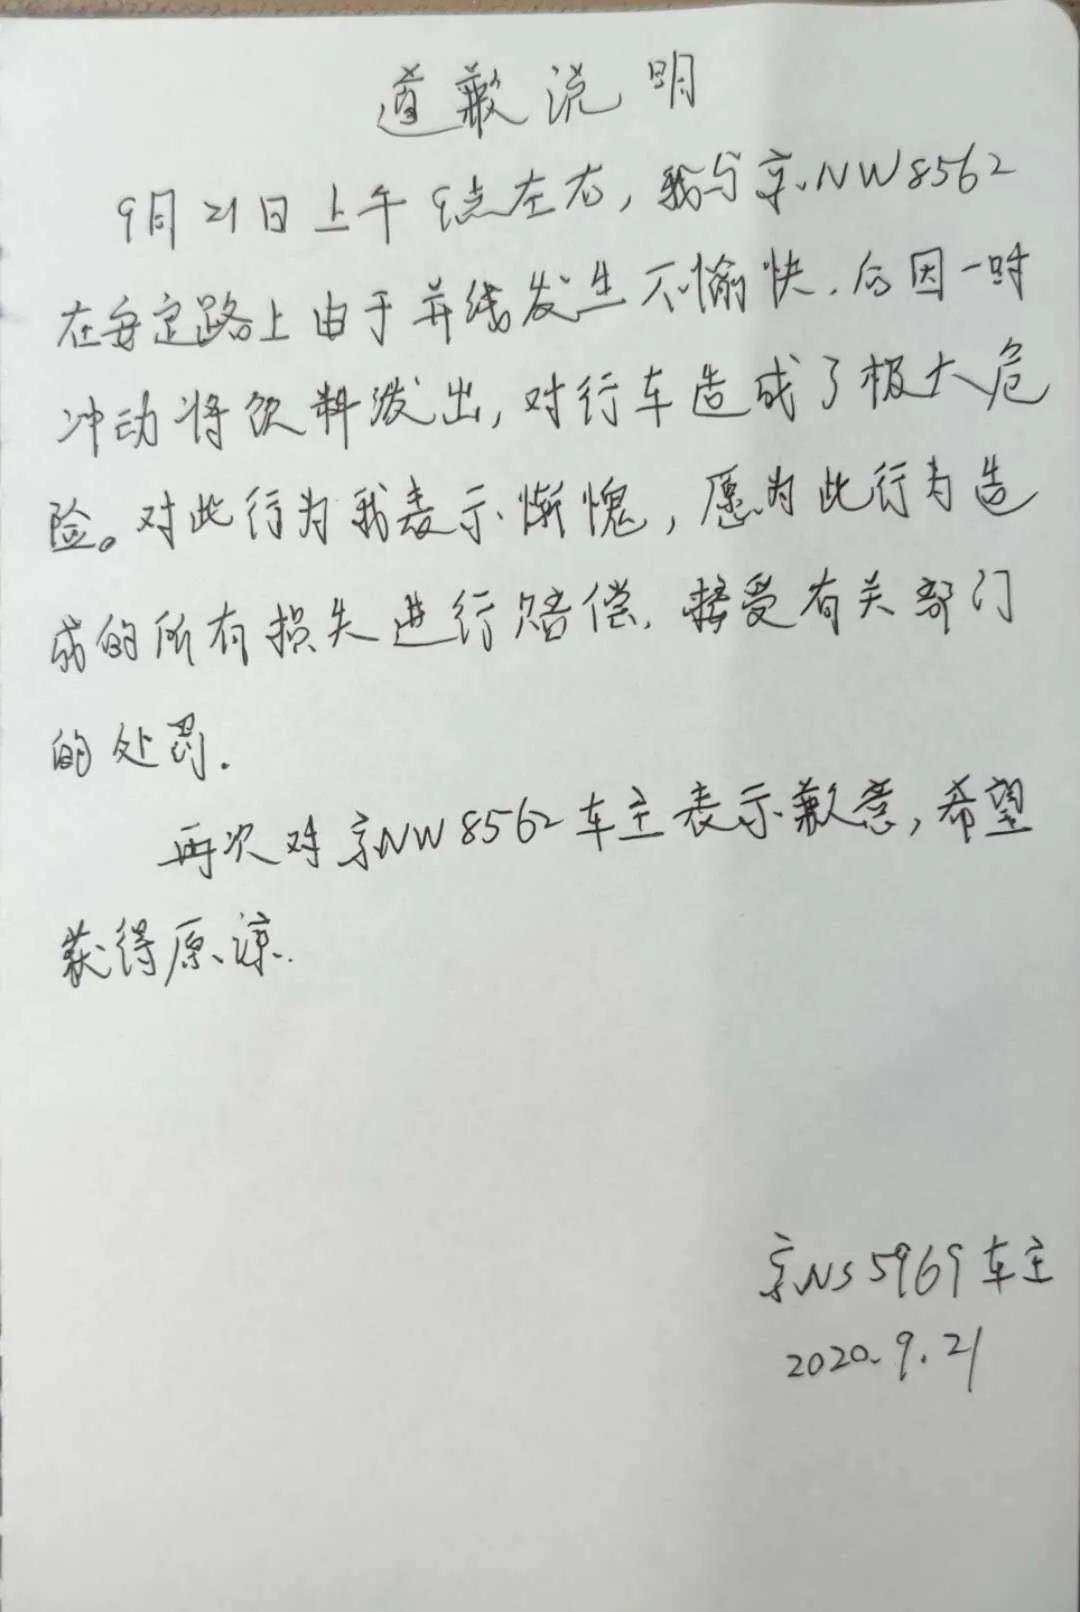 道歉说明
9月21日上午9点左右，我与京NW8562
在安定路上由于并线发生不愉快.后因一时
冲动将饮料泼出，对行车造成了极大危
险。对此行为我表示惭愧，愿为此行为造
成的所有损失进行赔偿.接受有关部门
的处罚.
再次对京NW8562车主表示歉意，希望
获得原谅.
京NS5969车主
2020.9.21